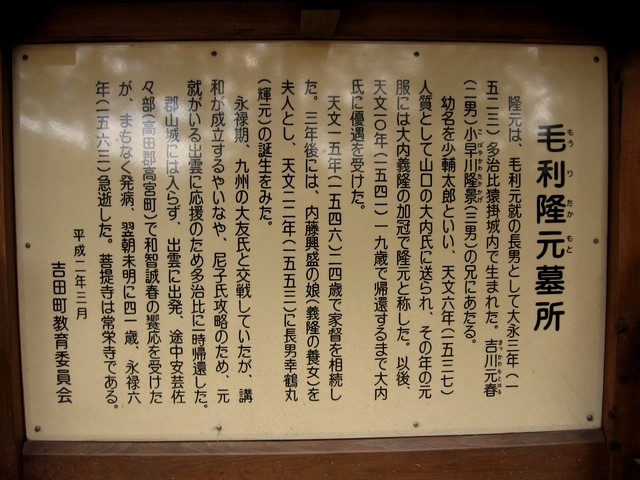 毛利隆元墓所
もうりたかもと
隆元は、毛利元就の長男として大永三年(一
五二三)多治比猿掛城内で生まれた。吉川元春
きっかわもとはる
(二男)小早川隆景(三男)の兄にあたる。
こばやかわたかかげ
幼名を少輔太郎といい、天文六年(一五三七)
人質として山口の大内氏に送られ、その年の元
服には大内義隆の加冠で隆元と称した。以後、
天文一〇年(一五四一)一九歳で帰還するまで大内
氏に優遇を受けた。
天文一五年(一五四六)二四歳で家督を相続し
た。三年後には、内藤興盛の娘(義隆の養女)を
夫人とし、天文二二年(一五五三)に長男幸鶴丸
(輝元)の誕生をみた。
永禄期、九州の大友氏と交戦していたが、講
和が成立するやいなや、尼子氏攻略のため、元
就がいる出雲に応援のため多治比に一時帰還した。
郡山城には入らず、出雲に出発、途中安芸佐
々部(高田郡高宮町)で和智誠春の饗応を受けた
が、まもなく発病、翌朝未明に四一歳、永禄六
年(一五六三)急逝した。菩提寺は常栄寺である。
平成一二年三月
吉田町教育委員会